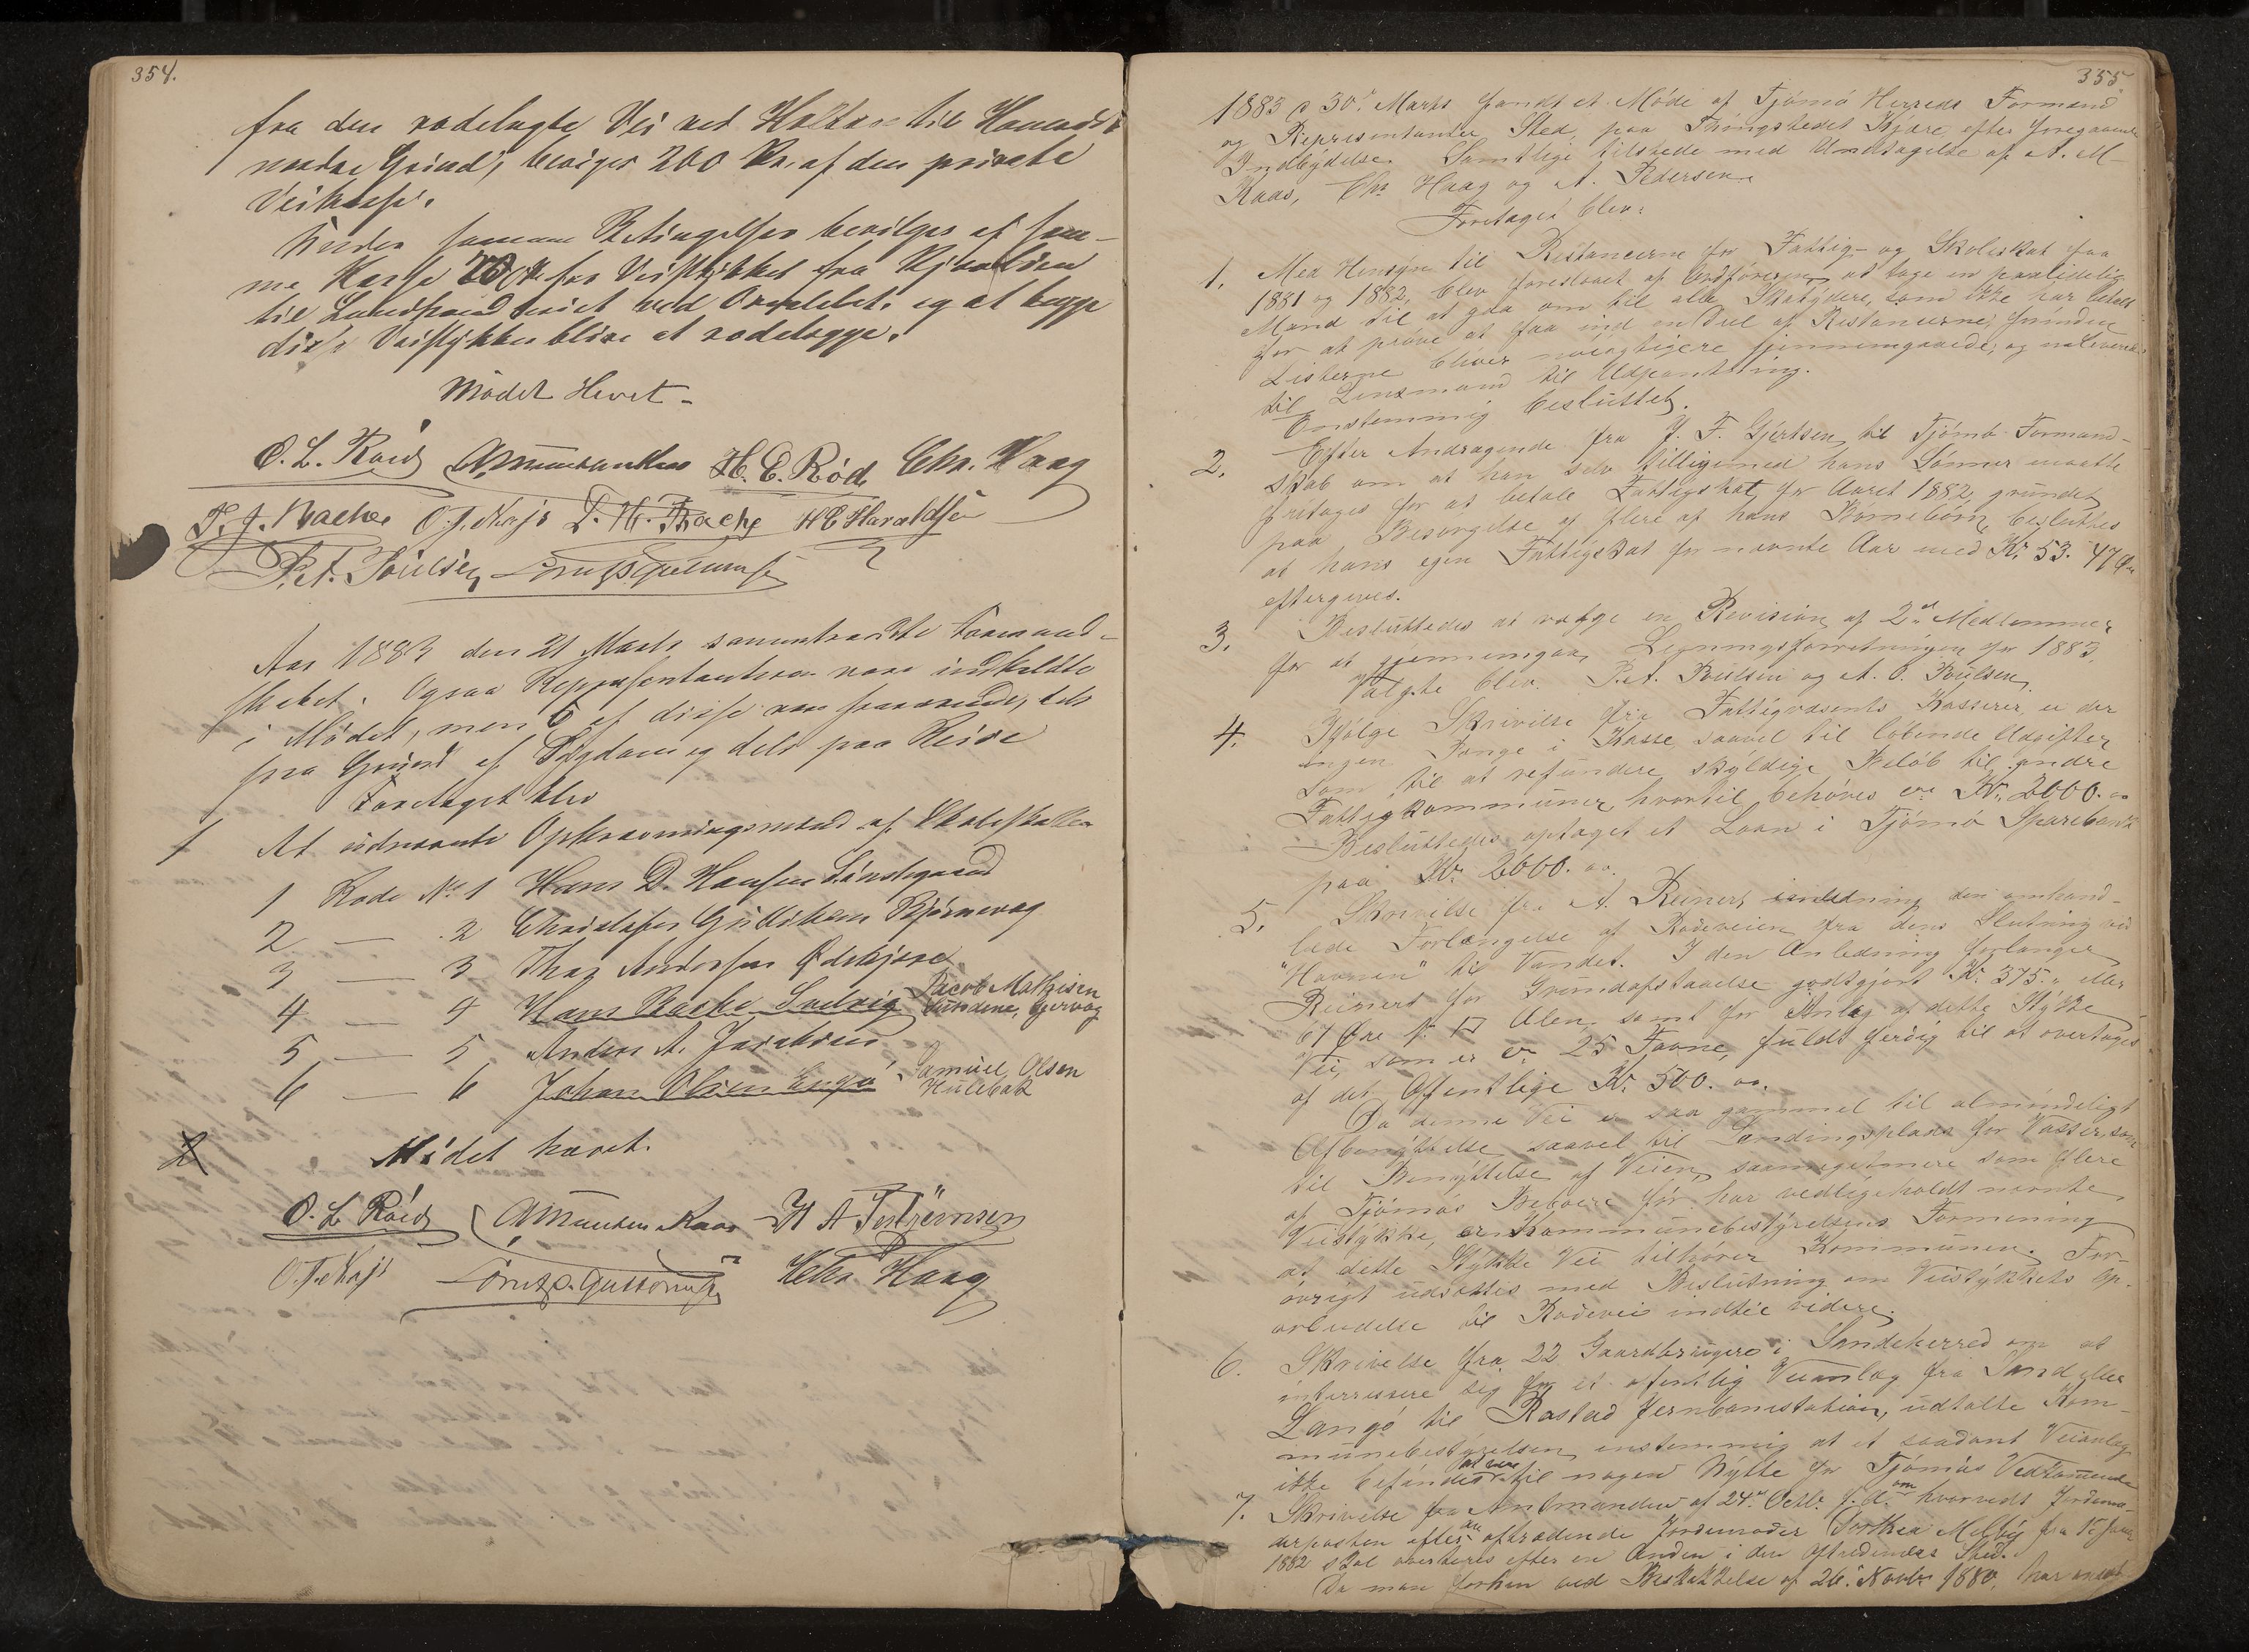 354.
fra den rodelagte Vei ved Holtan til
nordre Grind, bevilges 200 Kr. af den private
Veikasse.
Under samme Betingelser bevilges af sam-
me Kasse for Veistykket fra
til ved og at begge
disse Veistykker blive at rodelægge.
Mødet Hevet -
O. L. Röed H. E. Röd. Chr. Haag
H E Haraldsen
Aar 1883 den 21 Marts sammentraadte Formand-
skabet. Ogsaa Repræsentanterne vare indkaldte
i Mödet, men 6 af disse vare fraværende, dels
paa Grund af Sygdom og dels paa Reise
Foretaget blev
1 At udnævnte Opkrævningsmænd af Skoleskatten
1 Rode No 1 Hans D. Hansen
2 — 2 Gulliksen
3 — 3 Andersen
4 — 4 Hans Bache Jacob Mathisen
Sundene, Gjervaag
5 — 5 Anders A. Jacobsen
6 — 6 Johan Olsen Samuel Olsen
Hulebak
2
Mödet hævet.
O. L Röed H A
Chr. Haag
355
1883 d 30te Marts fandt et Möde af Tjömö Herreds Formand
og Repræsentanter Sted, paa Thingstedet Kjære, efter foregaaende
Indbydelse. Samtlige tilstede med Undtagelse af A. M-
Kaas, Chr Haag og A. Pedersen.
Foretaget blev:
1. Med Hensyn til Restancerne for Fattig- og Skoleskat for
1881 og 1882, blev foreslaaet af Ordföreren, at tage en paalidelig
Mand til at gaa om til alle Skatydere, som ikke har betalt
for at pröve at faa ind en Del af Restancerne, forinden
Listerne bliver nöiagtigere gjennemgaaede, og
til Lensmand til Udpantning.
Enstemmig besluttet.
2. Efter Andragende fra J. F. Gjertsen til Tjömö Formand-
skab om at han selv tilligemed hans Sönner maatte
fritages for at betale Fattigskat for Aaret 1882, grundet
paa Besörgelse af flere af hans Börnebörn, besluttes
at hans egen Fattigskat for nævnte Aar med Kr. 53. 47 Öre
eftergives.
3. Besluttedes at vælge en Revision af 2de Medlemmer
for at gjennemgaa Ligningsforretningen for 1883.
Valgte blev. P. A. Poulsen og A. O. Poulsen.
4. Ifölge Skrivelse fra Fattigvæsents Kasserer er der
ingen Penge i Kasse, saavel til löbende Udgifter
som til at refundere skyldige Belöb til andre
Fattigkommuner, hvortil behöves ca Kr. 2000. "
Besluttedes optaget et Laan i Tjömö Sparebank
paa Kr. 2000. oo.
5. Skrivelse fra A. Reinert den omhand-
lede Forlængelse af Rodeveien fra dens Slutning ved
"Havnen" til Vandet. I den Anledning forlanger
Reinert for Grundafstaaelse godtgjort Kr. 375. " eller
67 Öre pr. □ Alen samt for Anlæg af dette Stykke
Vei, som er ca 25 Favne, fuldt færdig til at overtages
af det Offentlige Kr. 500. oo.
Da denne Vei er saa gammel til almindeligt
Afbenyttelse saavel til Landingsplads for som
til Benyttelse af Veien, saameget mere som flere
af Tjömös Beboere för har vedligeholdt nævnte
Veistykke, er Kommunebestyrelsens Formening
at dette Stykke Vei tilhörer Kommunen. For-
övrigt udsættes med Beslutning om Veistykkets Op-
arbeidelse til Rodevei indtil videre.
6. Skrivelse fra 22 Gaardbrugere i Sandeherred om at
interressere sig for et offentlig Veianlæg fra Sand eller
Langö til Rastad Jernbanestation, udtalte Kom-
munebestyrelsen enstemmig at et saadant Veianlæg
ikke befandtes at være til nogen Nytte for Tjömös Vedkommende
7. Skrivelse fra Amtmanden af 24de Octbr. f. A. om hvorvidt Jordemo-
derposten efter den aftrædende Jordemoder Dorthea Melby fra 1te Januar
1882 skal efter en Anden i den Aftrædendes Sted.
Da man forhen ved af 26. Novbr 1880, har